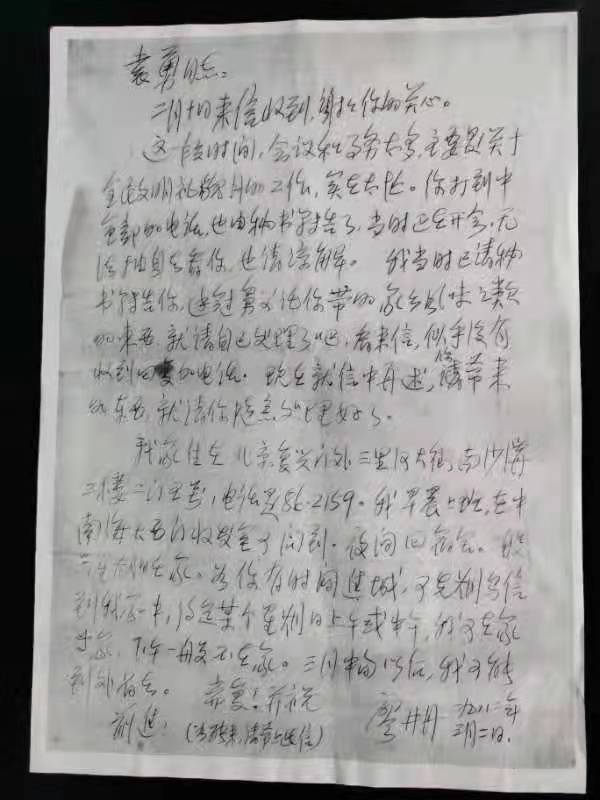 袁勇同志:
二月十日来信收到,谢谢你的关心。
这一段时间,会议和事务太多,主要是关于
全民文明礼貌月的工作,实在太忙。你打到中
宣部的电话,也由秘书转告了,当时正在开会,无
法抽身去看你,也请谅解。我当时已请秘
书转告你,
的东西,就请自己处理了吧,看来信,似乎没有
收到回复的电话。现在就信中再述,你请带来
的东西,就请你随意处理好了。
我家住在北京复兴门外三里河大街,南沙沟
三楼二门五号,电话是86.2159。我早晨上班,在中
南海大西门收发室可问到。夜间回宿舍。
在家。若你有时间进城,可先期写信
到我家中,约定某个星期日上午或中午,我可在家
下午一般是不在家。三月中旬以后,我可能
到外地去。 专复!并祝
前进! 廖井丹 一九八二年
(，请带上此信) 三月二日.